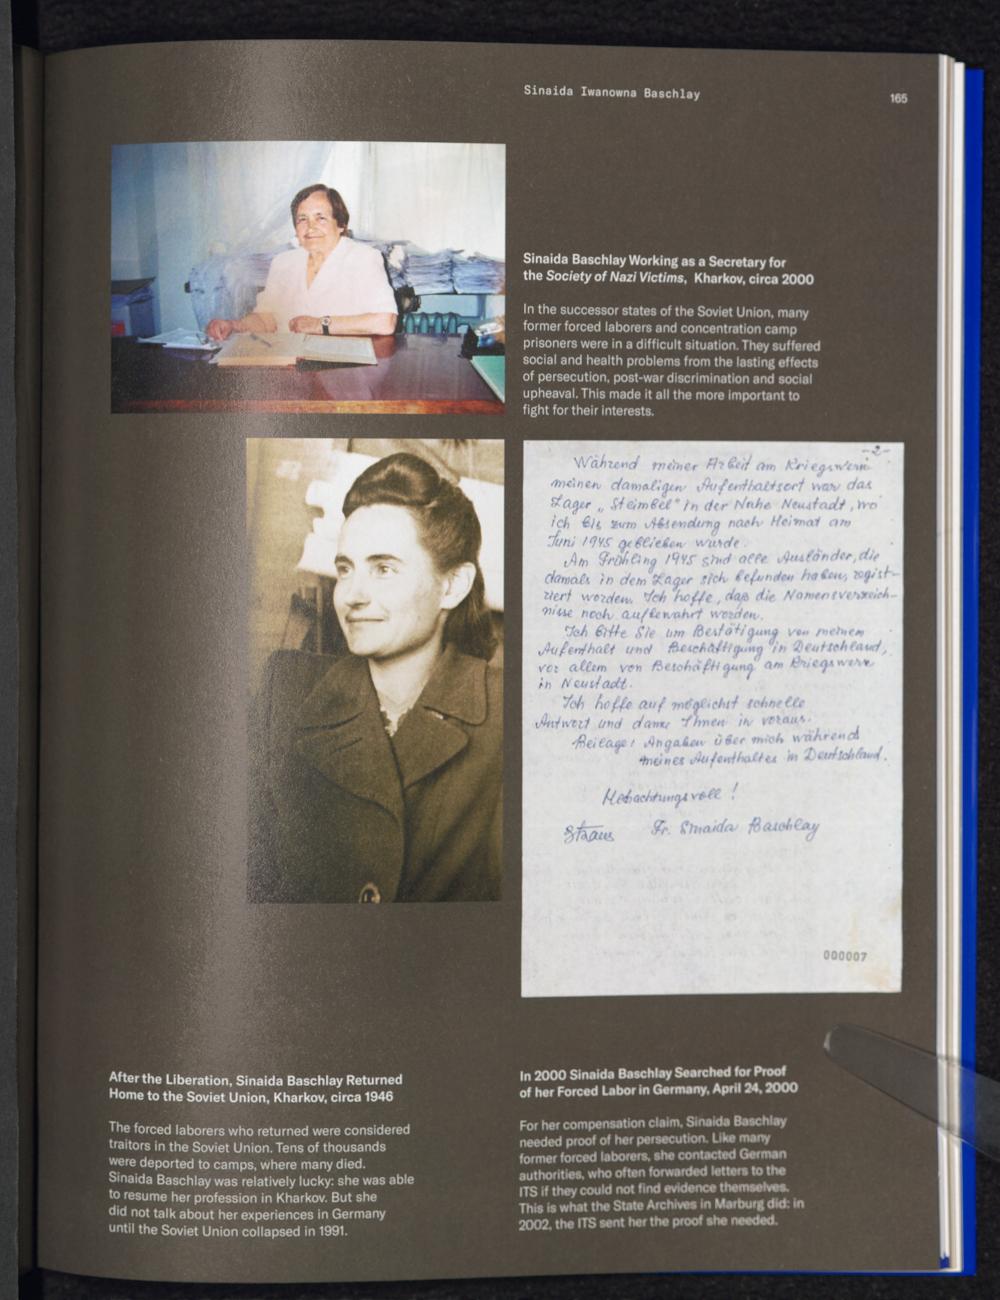 Sinaida Iwanowna Baschlay
165
Sinaida Baschlay Working as a Secretary for
the Society of Nazi Victims, Kharkov, circa 2000
In the successor states of the Soviet Union, many
former forced laborers and concentration camp
prisoners were in a difficult situation. They suffered
social and health problems from the lasting effects
of persecution, post-war discrimination and social
upheaval. This made it all the more important to
fight for their interests.
-2-
Während meiner Arbeit am Kriegswerk
meinen damaligen Aufenthaltsort war das
Lager „Steimbel" in der Nähe Neustadt, wo
ich bis zum Absendung nach Heimat am
Juni 1945 geblieben wurde.
Am Frühling 1945 sind alle Ausländer, die
damals in dem Lager sich befunden haben, regist-
riert worden. Ich hoffe, daß die Namensverzeich-
nisse noch aufbewahrt worden.
Ich bitte Sie um Bestätigung von meinem
Aufenthalt und Beschäftigung in Deutschland,
vor allem von Beschäftigung am Kriegswerk
in Neustadt.
Ich hoffe auf möglichst schnelle
Antwort und danke Ihnen in voraus.
Beilage: Angaben über mich während
meines Aufenthaltes in Deutschland.
Hochachtungsvoll!
Fr. Sinaida Baschlay
000007
After the Liberation, Sinaida Baschlay Returned
Home to the Soviet Union, Kharkov, circa 1946
The forced laborers who returned were considered
traitors in the Soviet Union. Tens of thousands
were deported to camps, where many died.
Sinaida Baschlay was relatively lucky: she was able
to resume her profession in Kharkov. But she
did not talk about her experiences in Germany
until the Soviet Union collapsed in 1991.
In 2000 Sinaida Baschlay Searched for Proof
of her Forced Labor in Germany, April 24, 2000
For her compensation claim, Sinaida Baschlay
needed proof of her persecution. Like many
former forced laborers, she contacted German
authorities, who often forwarded letters to the
ITS if they could not find evidence themselves.
This is what the State Archives in Marburg did: in
2002, the ITS sent her the proof she needed.